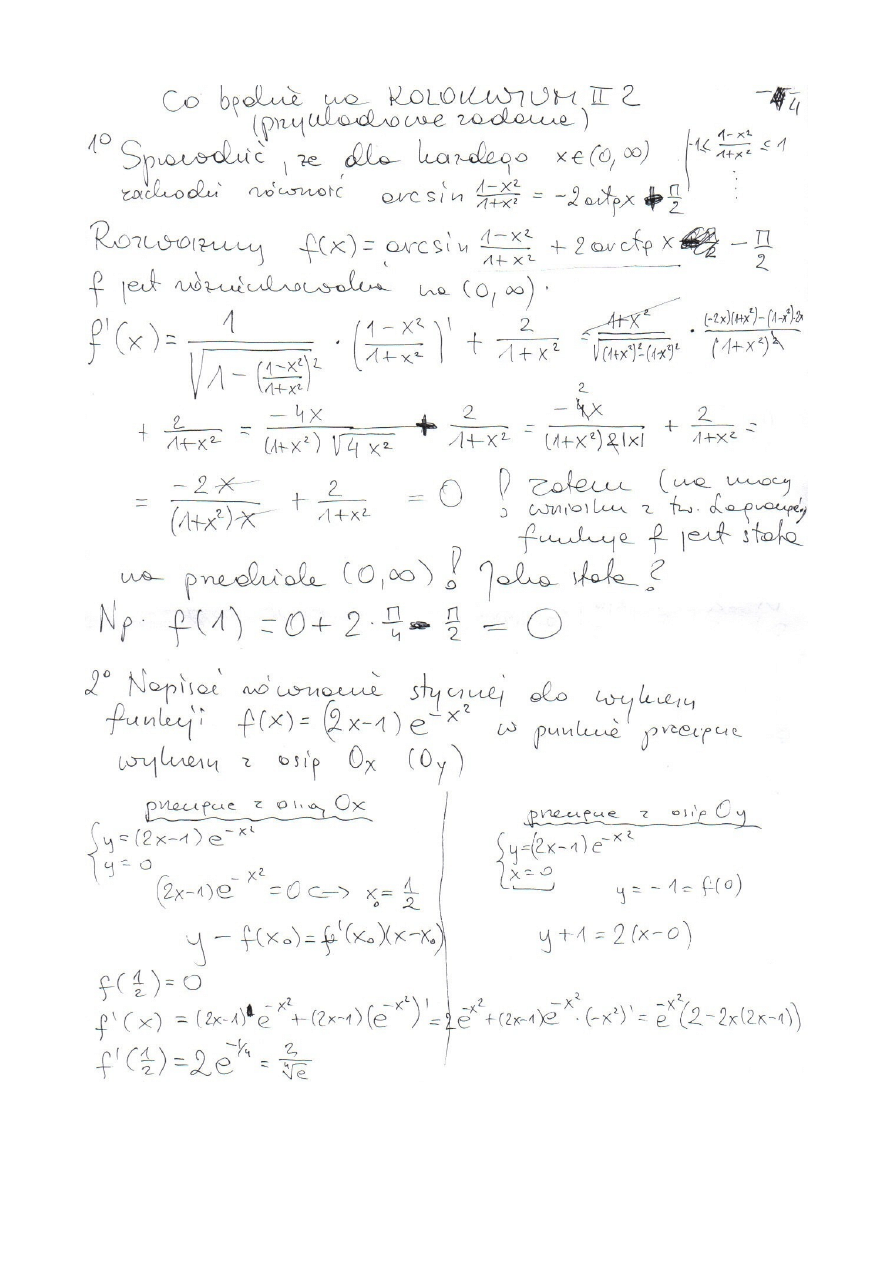 Co będzie na KOLOKWIUM II ?
(przykładowe zadania)
1° Sprawdzić, że dla każdego x∈(0,∞)
-1 ≤ \frac{1-x²}{1+x²} ≤ 1
zachodzi równość arcsin \frac{1-x²}{1+x²} = -2arctg x + \frac{π}{2}
Rozważmy f(x) = arcsin \frac{1-x²}{1+x²} + 2arctg x - \frac{π}{2}
f jest różniczkowalna na (0,∞).
f'(x) = \frac{1}{\sqrt{1-(\frac{1-x²}{1+x²})²}} · (\frac{1-x²}{1+x²})' + \frac{2}{1+x²} = \frac{1+x²}{\sqrt{(1+x²)²-(1-x²)²}} · \frac{(-2x)(1+x²)-(1-x²)·2x}{(1+x²)²}
+ \frac{2}{1+x²} = \frac{-4x}{(1+x²)\sqrt{4x²}} + \frac{2}{1+x²} = \frac{-4x}{(1+x²)2|x|} + \frac{2}{1+x²} =
= \frac{-2x}{(1+x²)x} + \frac{2}{1+x²} = 0 ! Zatem (na mocy
wniosku z tw. Lagrange'a
funkcja f jest stała
na przedziale (0,∞)! Jaka stała?
Np. f(1) = 0 + 2·\frac{π}{4} - \frac{π}{2} = 0
2° Napisać równanie stycznej do wykresu
funkcji f(x) = (2x-1)e^{-x²} w punkcie przecięcia
wykresu z osią Ox (Oy)
przecięcie z osią Ox
{y=(2x-1)e^{-x²}
y=0
(2x-1)e^{-x²} = 0 <-> x₀ = \frac{1}{2}
y - f(x₀) = f'(x₀)(x-x₀)
przecięcie z osią Oy
{y=(2x-1)e^{-x²}
x=0
y = -1 = f(0)
y+1 = 2(x-0)
f(\frac{1}{2}) = 0
f'(x) = (2x-1)'e^{-x²} + (2x-1)(e^{-x²})' = 2e^{-x²} + (2x-1)e^{-x²}·(-x²)' = e^{-x²}(2-2x(2x-1))
f'(\frac{1}{2}) = 2e^{-1/4} = \frac{2}{\sqrt[4]{e}}